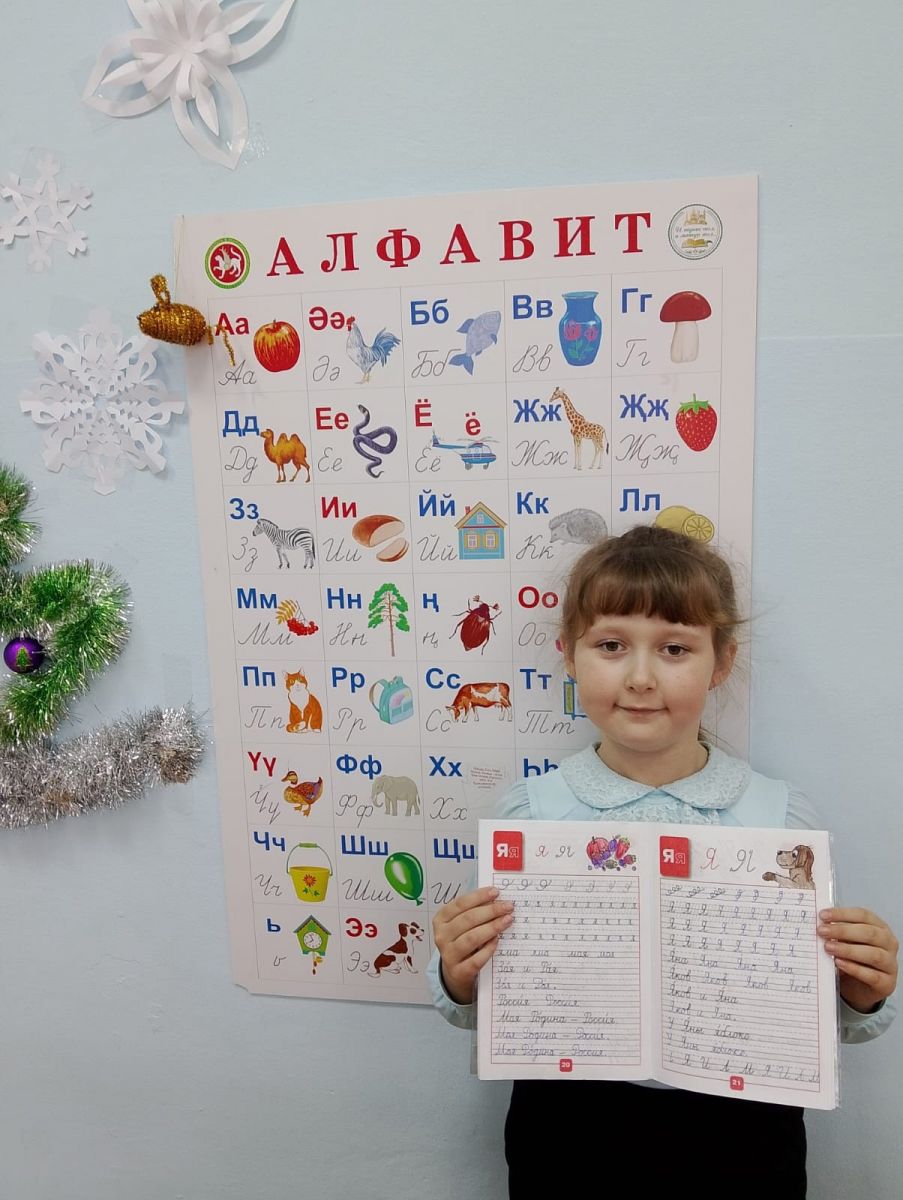 АЛФАВИТ
Аа Әә Бб Вв Гг
Аа Әә Бб Вв Гг
Дд Ее Ё ё Жж Җҗ
Дд Ее Ёё Жж Җҗ
Зз Ии Йй Кк Лл
Зз Ии Йй Кк
Мм Нн ң Оо
Мм Нн ң Оо
Пп Рр Сс Тт
Пп Рр Сс Тт
Үү Фф Хх
Үү Фф Хх
Чч Шш
Чч Шш
ь Ээ
ь Ээ
Яя я Я
яма яма мая мая
Зая и Рая.
Зая и Рая.
Россия Россия
Моя Родина – Россия.
Моя Родина – Россия.
Моя Родина – Россия.
20
Яя Я Я
Я Я Я Я Я Я Я Я
Яна Яна Яна Яна
Яков Яков Яков Яков
Яков и Яна.
Яков и Яна.
У Яны яблоко.
У Яны яблоко.
21